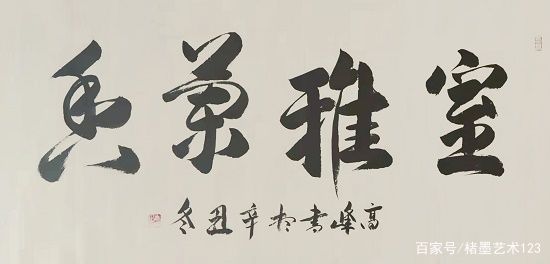 室雅蘭香
高峰書於辛丑冬
百家号/楮墨艺术123